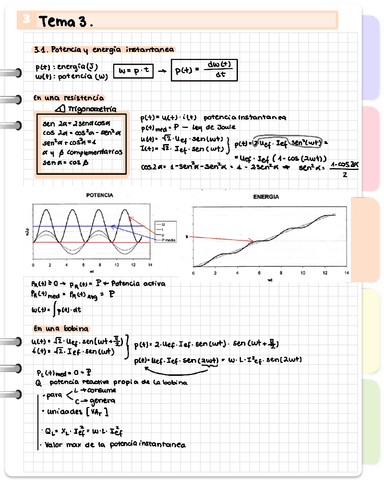 3 Tema 3.
3.1. Potencia y energía instantanea
p(t): energía (J)
w(t): potencia (W)
w = p · t → p(t) = dw(t)/dt
En una resistencia
Trigonometría
sen 2α = 2senαcosα
cos 2α = cos²α - sen²α
sen²α + cos²α = 1
α y β complementarios
sen α = cos β
p(t) = u(t) · i(t) potencia instantanea
p(t)med = P → Ley de Joule
u(t) = √2 · Uef · sen(wt)
i(t) = √2 · Ief · sen(wt)
p(t) = 2 Uef · Ief · sen²(wt) =
= Uef · Ief (1 - cos(2wt))
cos2α = 1 - sen²α - sen²α = 1 - 2sen²α → sen²α = 1 - cos2α / 2
POTENCIA
u
i
p
P media
0 2 4 6 8 10 12 14
wt
ENERGIA
0 2 4 6 8 10 12 14
wt
PR(t) ≥ 0 → PR(t) = P ← Potencia activa
PR(t)med = PR(t)avg = P
w(t) = ∫p(t) · dt
En una bobina
u(t) = √2 · Uef · sen(wt + π/2)
i(t) = √2 · Ief · sen(wt)
p(t) = 2 · Uef · Ief · sen(wt) · sen(wt + π/2)
p(t) = Uef · Ief · sen(2wt) = w · L · I²ef · sen(2wt)
PL(t)med = 0 = P
Q potencia reactiva propia de la bobina
- para L → consume
C → genera
· unidades [VAr]
· QL = XL · I²ef = w · L · I²ef
· Valor max de la potencia instantanea